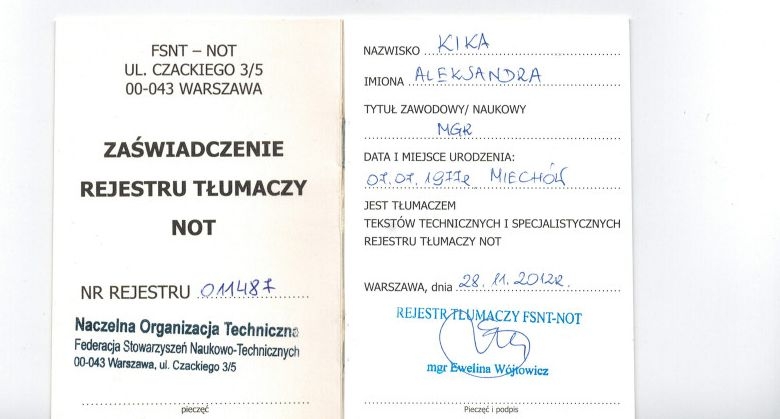 FSNT – NOT
UL. CZACKIEGO 3/5
00-043 WARSZAWA
ZAŚWIADCZENIE
REJESTRU TŁUMACZY
NOT
NR REJESTRU 011487
Naczelna Organizacja Techniczna
Federacja Stowarzyszeń Naukowo-Technicznych
00-043 Warszawa, ul. Czackiego 3/5
pieczęć
NAZWISKO KIKA
IMIONA ALEKSANDRA
TYTUŁ ZAWODOWY/ NAUKOWY
MGR
DATA I MIEJSCE URODZENIA:
07.07.1977r MIECHÓW
JEST TŁUMACZEM
TEKSTÓW TECHNICZNYCH I SPECJALISTYCZNYCH
REJESTRU TŁUMACZY NOT
WARSZAWA, dnia 28.11.2012R.
REJESTR TŁUMACZY FSNT-NOT
mgr Ewelina Wójtowicz
Pieczęć i podpis